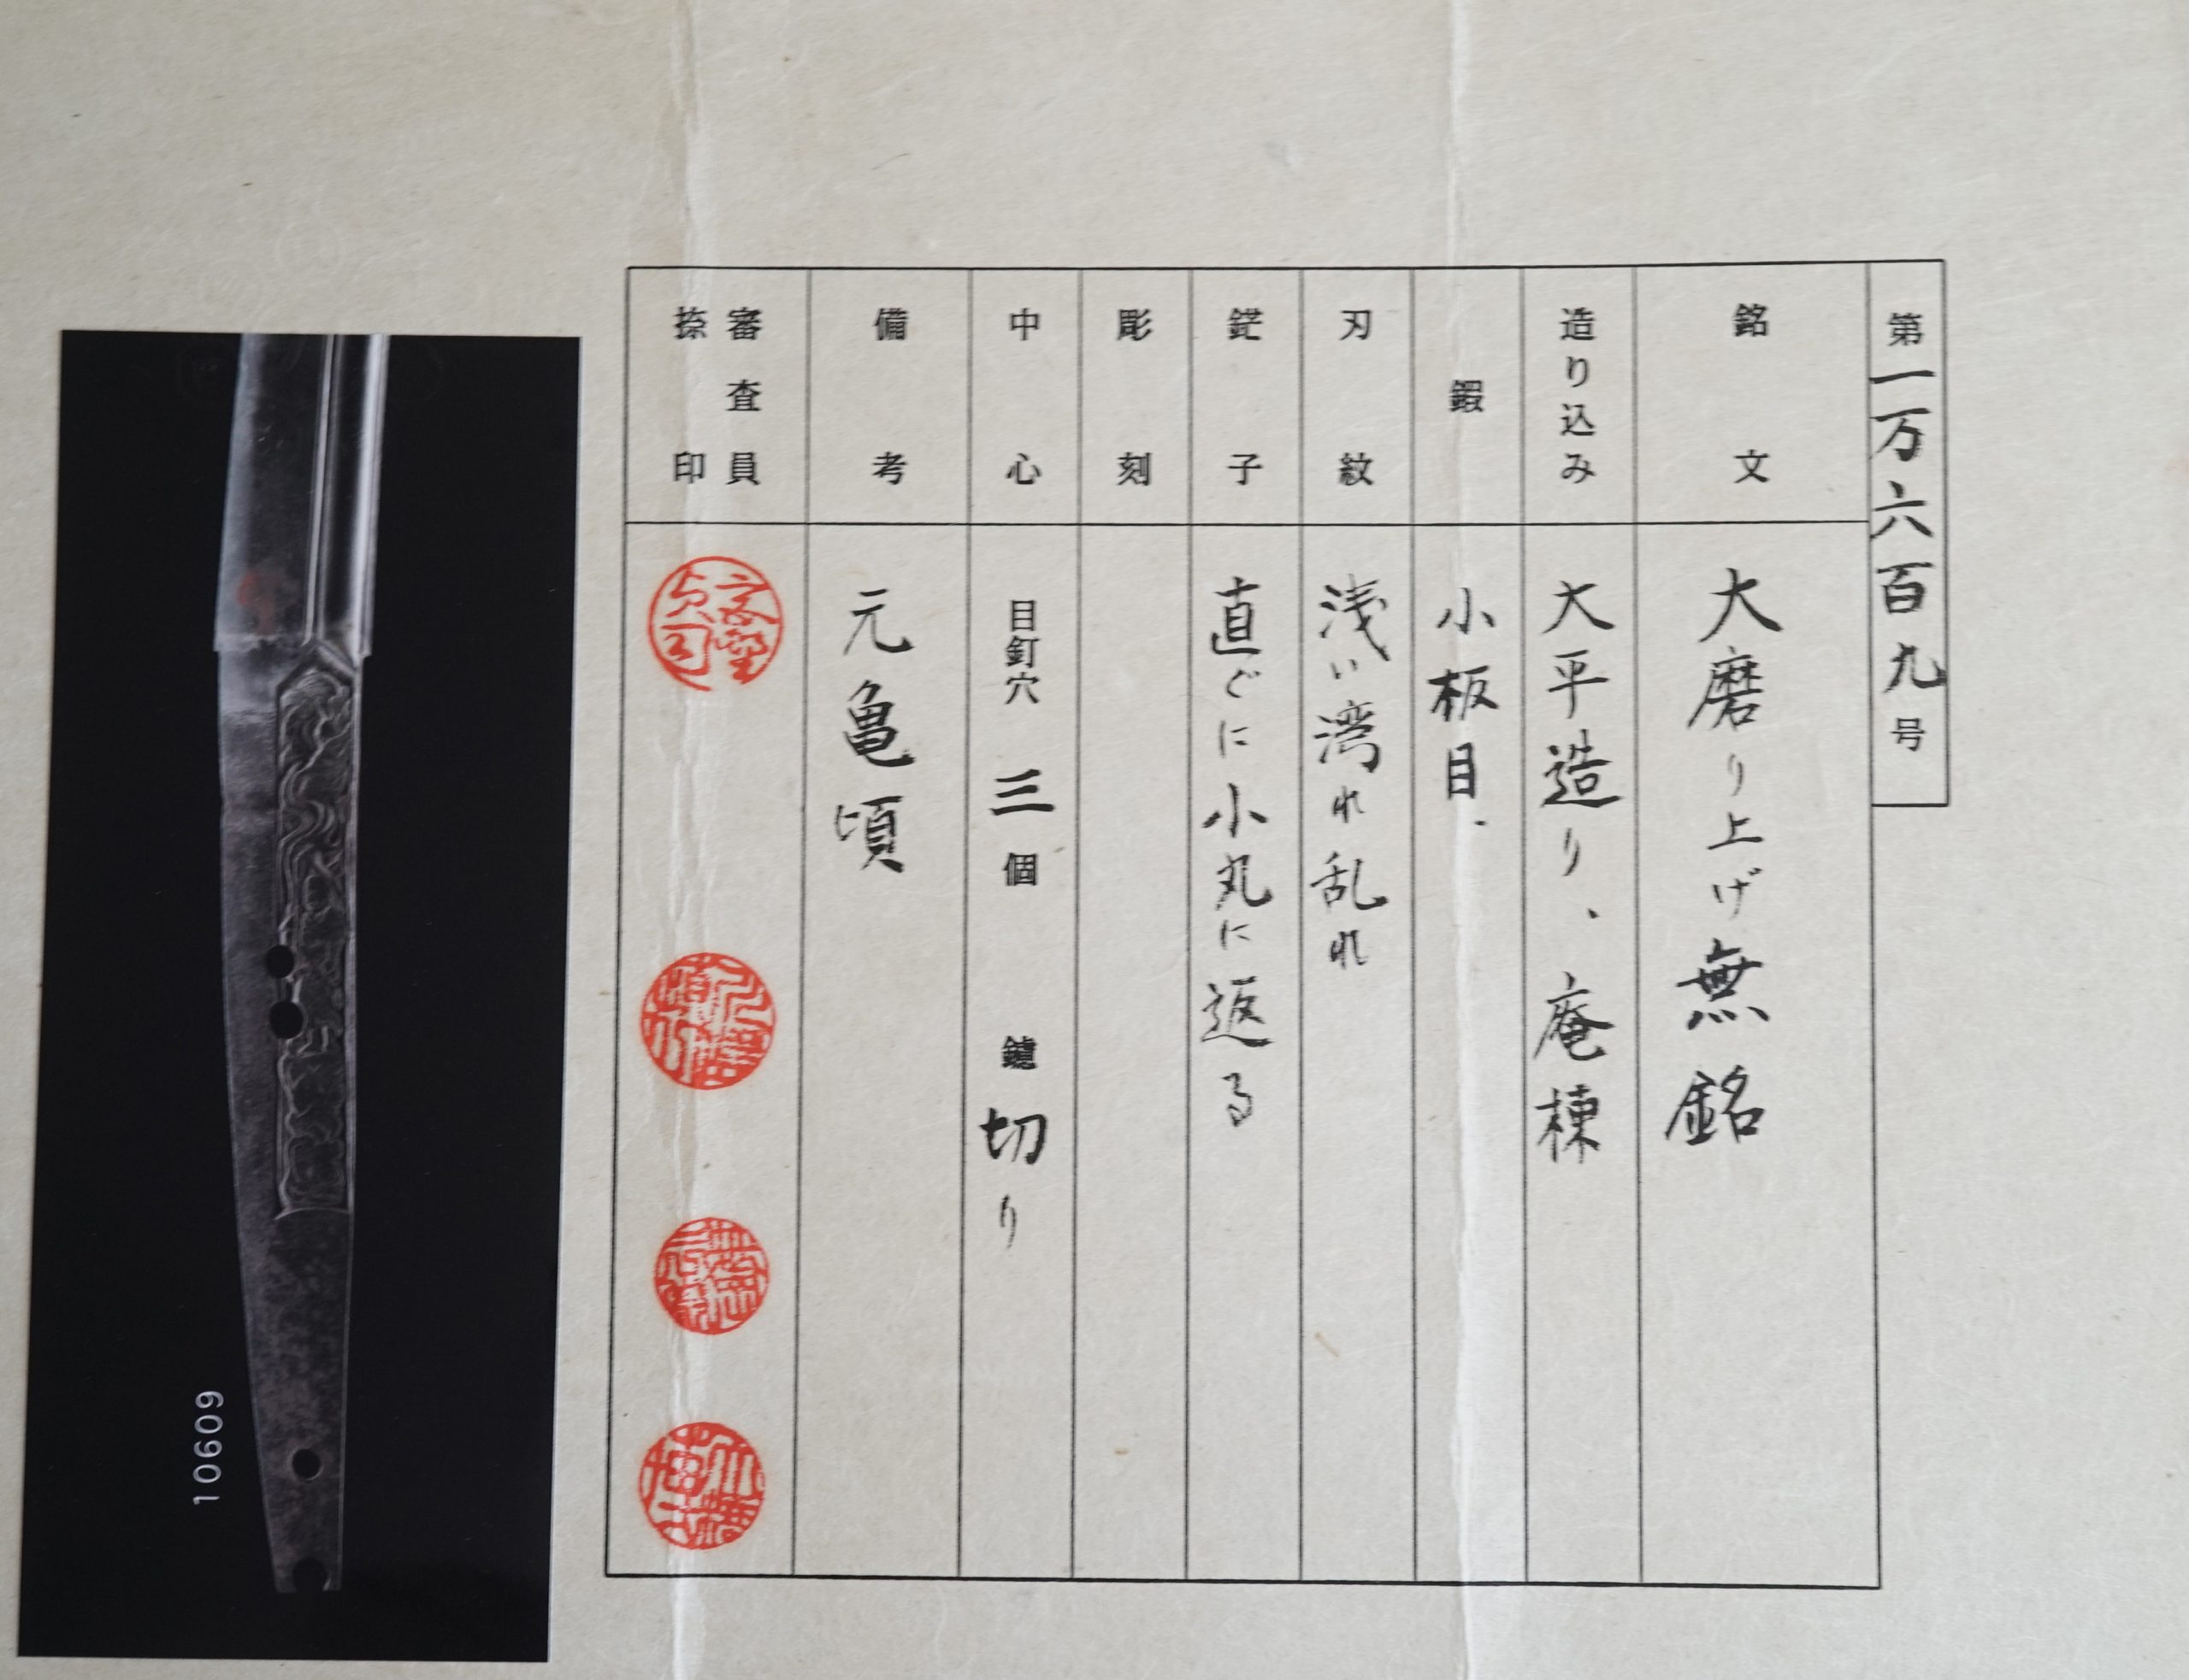 第一万六百九号
銘文
大磨り上げ無銘
造り込み
大平造り、庵棟
鍜
小板目、
刃紋
浅い湾れ乱れ
鋩子
直ぐに小丸に返る
彫刻
中心
目釘穴 三個 鑢 切り
備考
元亀頃
審査員
捺印
10609